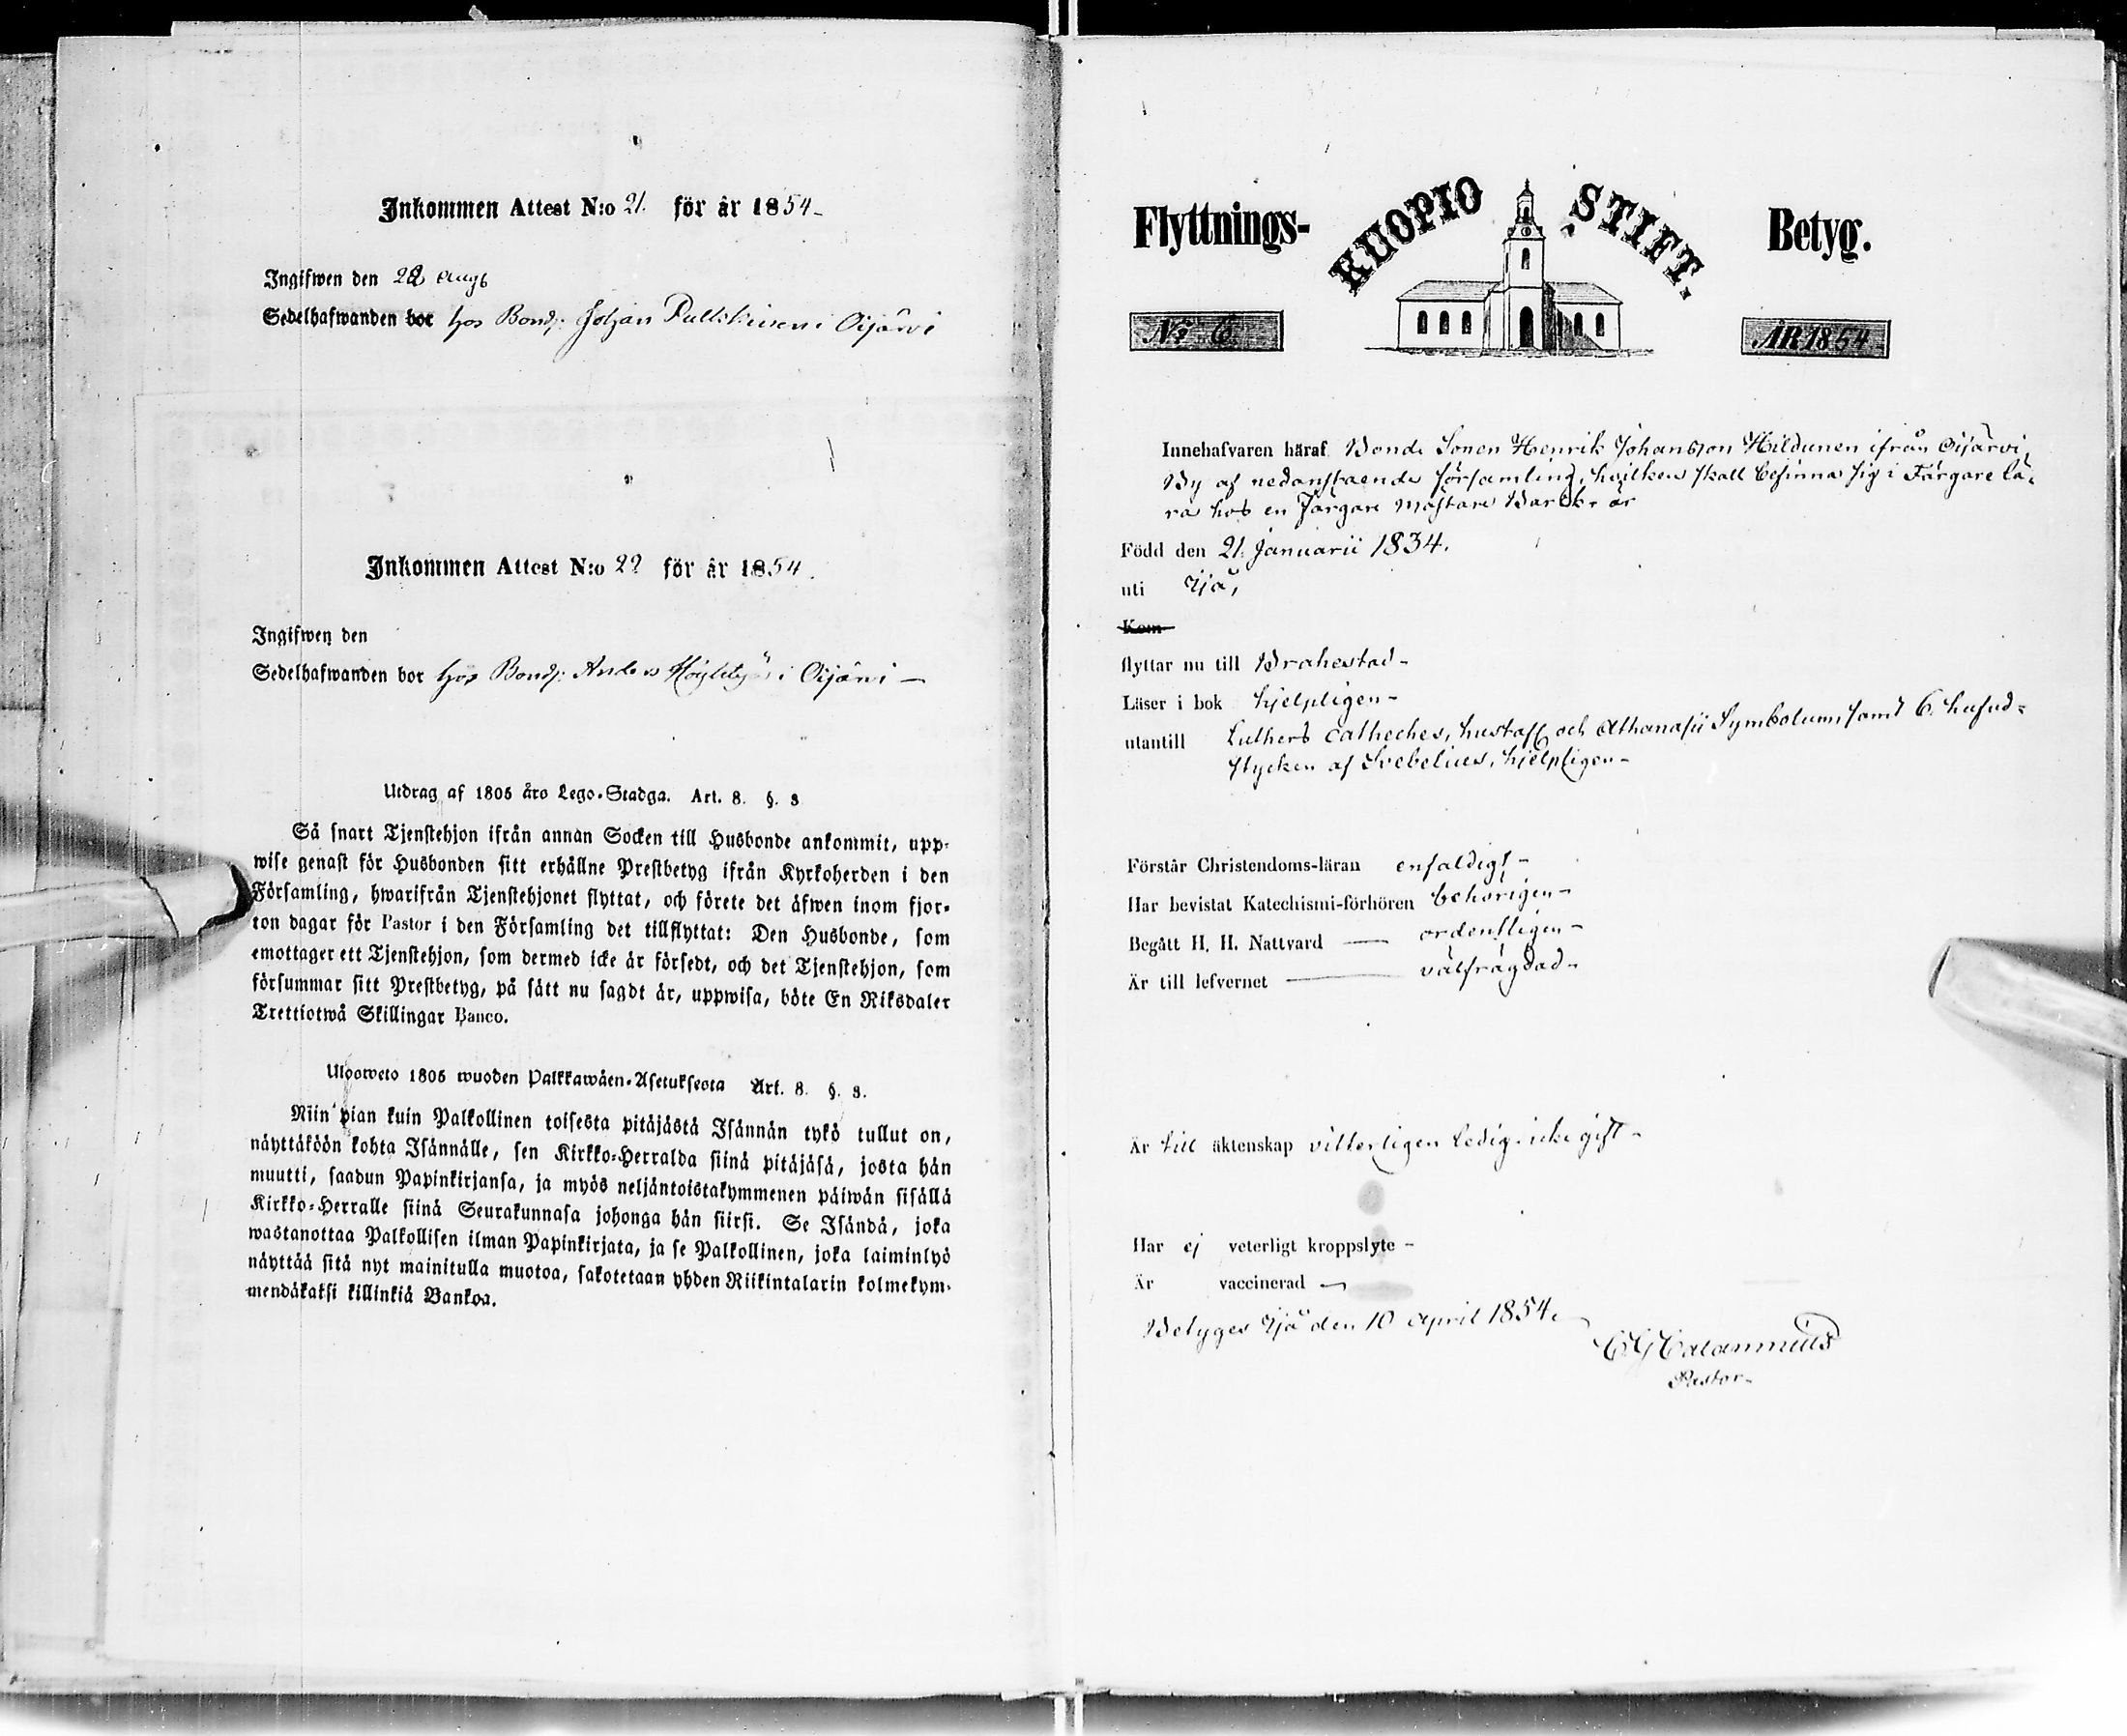 Inkommen Attest N:o 21. för år 1854-
Ingifwen den 22 Aug
Sedelhafwanden bor hos Bond: Johan Pulkkinen i Oijärvi
Inkommen Attest N:o 22 för år 1854.
Ingifwen den
Sedelhafwanden bor hos Bond: Anders i Oijärvi —
Utdrag af 1805 års Lego-Stadga. Art. 8. §. 3
Så snart Tjenstehjon ifrån annan Socken till Husbonde ankommit, upp-
wise genast för Husbonden sitt erhållne Prestbetyg ifrån Kyrkoherden i den
Församling, hwarifrån Tjenstehjonet flyttat, och förete det äfwen inom fjor-
ton dagar för Pastor i den Församling det tillflyttat: Den Husbonde, som
emottager ett Tjenstehjon, som dermed icke är försedt, och det Tjenstehjon, som
försummar sitt Prestbetyg, på sätt nu sagdt är, uppwisa, böte En Riksdaler
Trettiotwå Skillingar Banco.
Ulosweto 1805 wuoden Palkkawäen-Asetuksesta Art. 8. §. 3.
Niin pian kuin Palkollinen toisesta pitäjästä Isännän tykö tullut on,
näyttäköön kohta Isännälle, sen Kirkko-Herralda siinä pitäjäsä, josta hän
muutti, saadun Papinkirjansa, ja myös neljäntoistakymmenen päiwän sisällä
Kirkko-Herralle siinä Seurakunnasa johonga hän siirsi. Se Isändä, joka
wastanottaa Palkollisen ilman Papinkirjata, ja se Palkollinen, joka laiminlyö
näyttää sitä nyt mainitulla muotoa, sakotetaan yhden Riikintalarin kolmekym-
mendäkaksi killinkiä Bankoa.
Flyttnings- KUOPIO STIFT. Betyg.
No 6 ÅR 1854
Innehafvaren häraf Bonde Sonen Henrik Johansson Hildunen ifrån Oijärvi
By af nedanstaende församling, hvilken skall befinna sig i Färgare lä-
ra hos en Färgare mästare är
Född den 21. Januarii 1834.
uti Ijå,
Kom
flyttar nu till Brahestad-
Läser i bok hjelpligen-
utantill Luthers catheches, hustafl och Athanasii Symbolum samt 6. hufud-
stycken af Svebelius, hjelpligen-
Förstår Christendoms-läran enfaldigt-
Har bevistat Katechismi-förhören behörigen-
Begått H. H. Nattvard — ordentligen-
Är till lefvernet — välfrägdad-
Är till äktenskap vitterligen ledig icke gift-
Har ej veterligt kroppslyte -
Är vaccinerad —
Betyges Ijå den 10 April 1854.
C G Calamnius
Pastor-